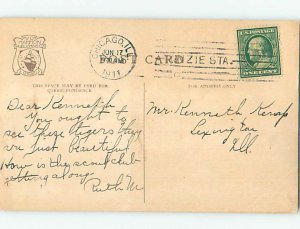 CHICAGO, ILL.
JUN 17
1911
CARD
ZIE STA.
U.S. POSTAGE
ONE CENT
THIS SPACE MAY BE USED FOR CORRESPONDENCE
FOR ADDRESS ONLY
Dear Kenneth
You ought to
see these tigers they
are just beautiful
How is the scout club
getting along.
Ruth M.
Mr. Kenneth
Lexington
Ill.